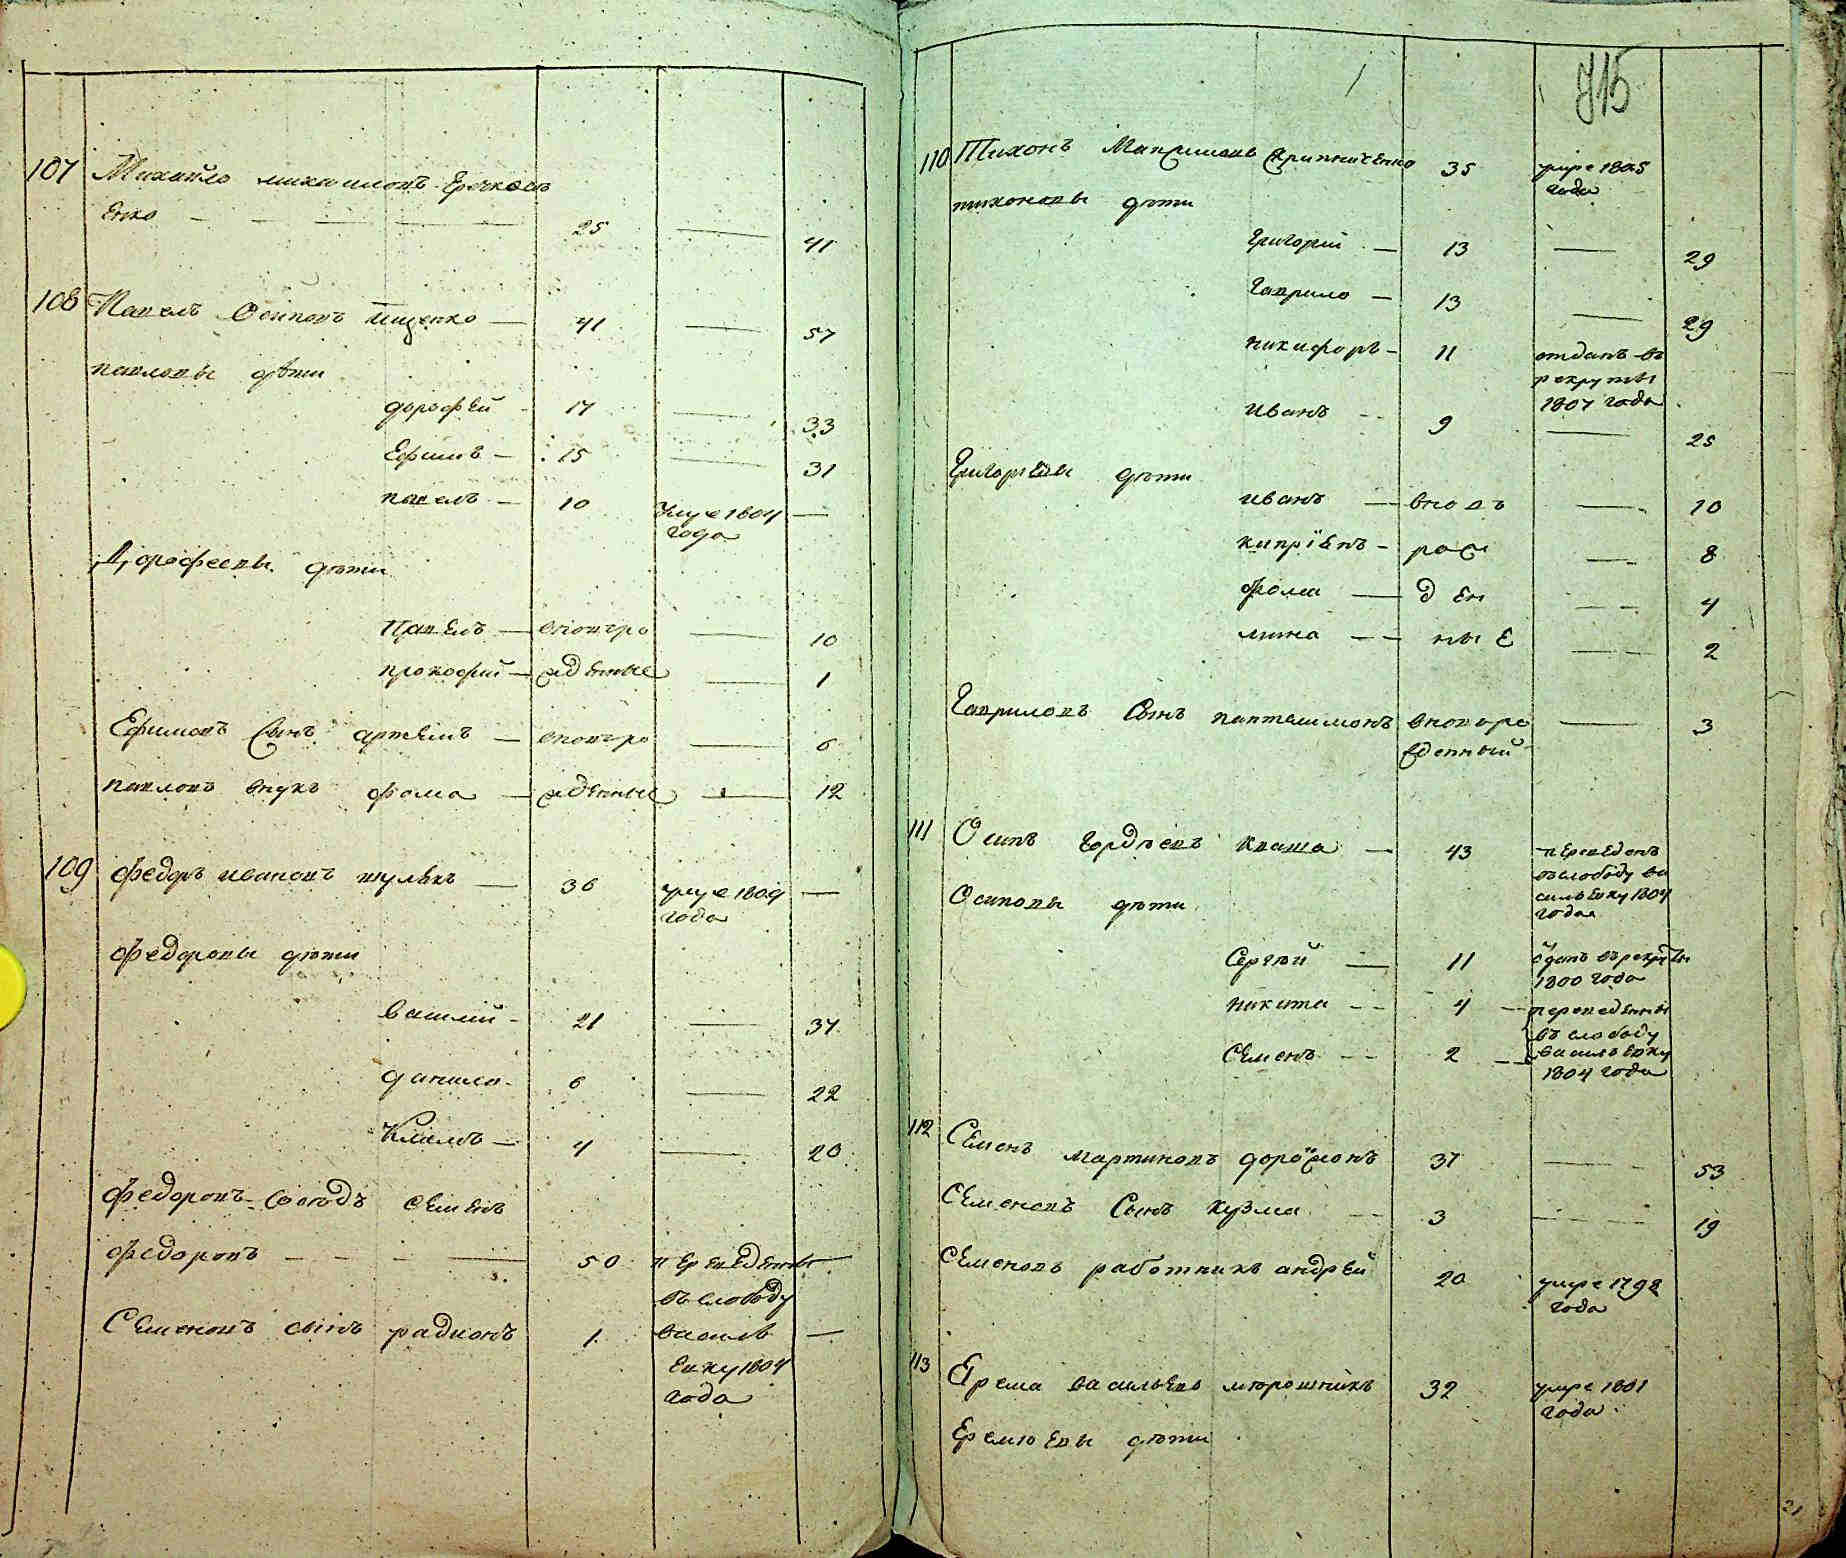 107 Михайло михаиловъ
енко — — — — 25 — 41
108 Павелъ Осиповъ ищенко — 41 — 57
павловы дѣти
дорофей 17 — 33
Ефимъ — 15 — 31
павелъ — 10 умре 1804 —
года
Дорофеевы дѣти
Павелъ — вновъро — 10
прокофий — жденные — 1
Ефимовъ сынъ артемъ — вновъро — 6
павловъ внукъ фома — жденные — 12
109 Федоръ ивановъ шулякъ — 36 умре 1809 —
года
Федоровы дѣти
василий — 21 — 37
данило — 6 — 22
Климъ — 4 — 20
Федоровъ сосѣдъ семенъ
федоровъ — — — 50 переведены —
въ слободу
Семеновъ сынъ радионъ 1 василь —
евку 1804
года
715
110 Тихонъ Максимовъ скрипниченко 35 умре 1805
года
тихоновы дѣти
григорий — 13 — 29
гаврило — 13 — 29
никифоръ — 11 отданъ въ
рекруты
1807 года
иванъ — 9 — 25
Григорьевы дѣти
иванъ — вновъ — 10
киприянъ — рож — 8
фома — д ен — 4
мина — — ны е — 2
Гавриловъ Сынъ пантелимонъ вновъро — 3
жденный
111 Осипъ гордѣевъ кваша — 43 переведенъ
въ слободу ва
сильевку 1804
года
Осиповы дѣти
Сергѣй — 11 ѿданъ въ рекруты
1800 года
никита — — 4 — переведены
въ слободу
Семенъ — — 2 — васильевку
1804 года
112 Семенъ мартиновъ 37 — 53
Семеновъ Сынъ кузма — 3 — — — 19
Семеновъ работникъ андрей 20 умре 1798
года
113 Ярема васильевъ мирошникъ 32 умре 1801
года
Еремѣевы дѣти
21